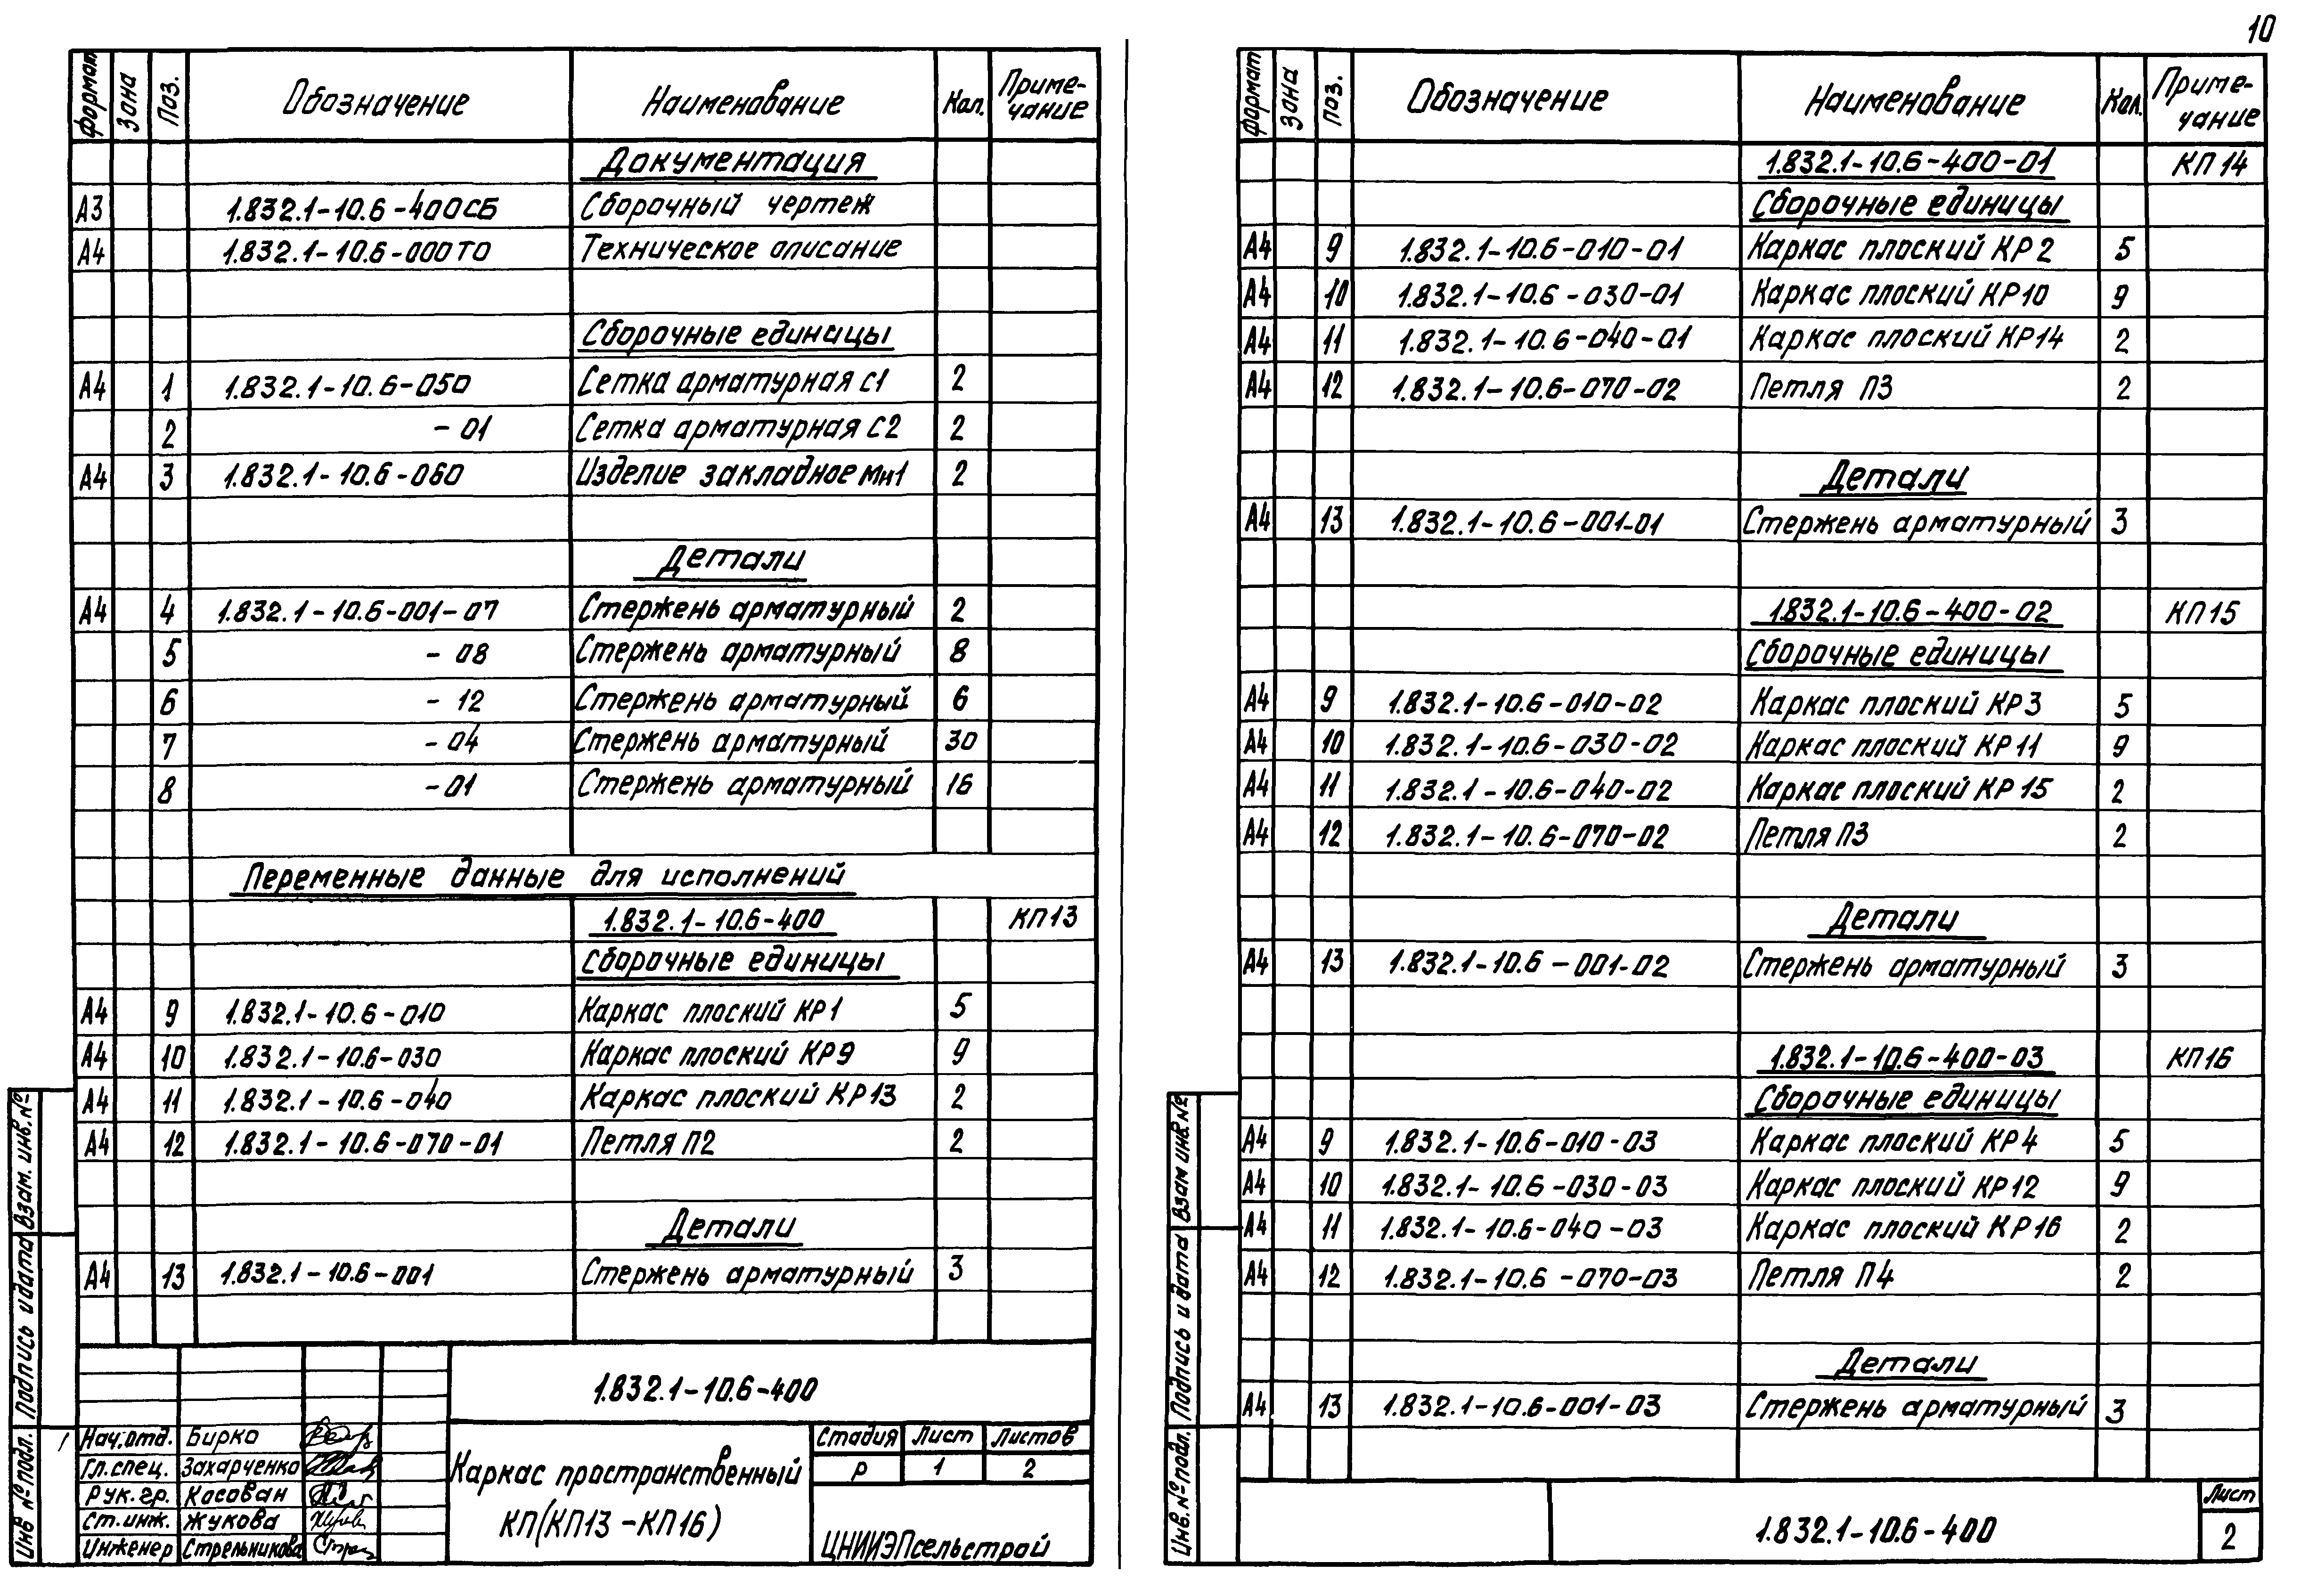 10
Формат Зона Поз. Обозначение Наименование Кол. Приме-
чание
Документация
А3 1.832.1-10.6-400СБ Сборочный чертеж
А4 1.832.1-10.6-000ТО Техническое описание
Сборочные единицы
А4 1 1.832.1-10.6-050 Сетка арматурная С1 2
2 -01 Сетка арматурная С2 2
А4 3 1.832.1-10.6-060 Изделие закладное Мн1 2
Детали
А4 4 1.832.1-10.6-001-07 Стержень арматурный 2
5 -08 Стержень арматурный 8
6 -12 Стержень арматурный 6
7 -04 Стержень арматурный 30
8 -01 Стержень арматурный 16
Переменные данные для исполнений
1.832.1-10.6-400 КП13
Сборочные единицы
А4 9 1.832.1-10.6-010 Каркас плоский КР1 5
А4 10 1.832.1-10.6-030 Каркас плоский КР9 9
А4 11 1.832.1-10.6-040 Каркас плоский КР13 2
А4 12 1.832.1-10.6-070-01 Петля П2 2
Детали
А4 13 1.832.1-10.6-001 Стержень арматурный 3
1.832.1-10.6-400
Нач.отд. Бирко
Гл.спец. Захарченко
Рук.гр. Касован
Ст.инж. Жукова
Инженер Стрельникова
Каркас пространственный
КП(КП13-КП16)
Стадия Лист Листов
Р 1 2
ЦНИИЭПсельстрой
Инв № подл. Подпись и дата Взам. инв. №
Формат Зона Поз. Обозначение Наименование Кол. Приме-
чание
1.832.1-10.6-400-01 КП14
Сборочные единицы
А4 9 1.832.1-10.6-010-01 Каркас плоский КР2 5
А4 10 1.832.1-10.6-030-01 Каркас плоский КР10 9
А4 11 1.832.1-10.6-040-01 Каркас плоский КР14 2
А4 12 1.832.1-10.6-070-02 Петля П3 2
Детали
А4 13 1.832.1-10.6-001-01 Стержень арматурный 3
1.832.1-10.6-400-02 КП15
Сборочные единицы
А4 9 1.832.1-10.6-010-02 Каркас плоский КР3 5
А4 10 1.832.1-10.6-030-02 Каркас плоский КР11 9
А4 11 1.832.1-10.6-040-02 Каркас плоский КР15 2
А4 12 1.832.1-10.6-070-02 Петля П3 2
Детали
А4 13 1.832.1-10.6-001-02 Стержень арматурный 3
1.832.1-10.6-400-03 КП16
Сборочные единицы
А4 9 1.832.1-10.6-010-03 Каркас плоский КР4 5
А4 10 1.832.1-10.6-030-03 Каркас плоский КР12 9
А4 11 1.832.1-10.6-040-03 Каркас плоский КР16 2
А4 12 1.832.1-10.6-070-03 Петля П4 2
Детали
А4 13 1.832.1-10.6-001-03 Стержень арматурный 3
1.832.1-10.6-400
Лист
2
Инв. № подл. Подпись и дата Взам инв. №